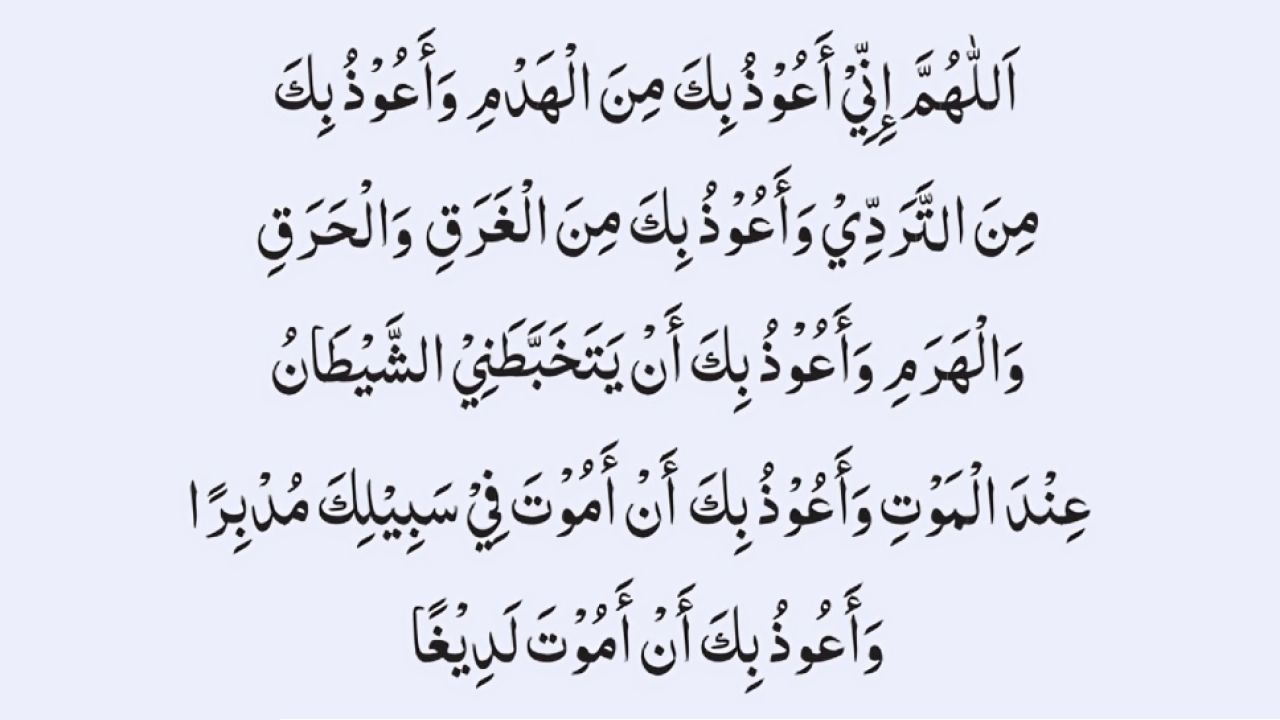 اَللّٰهُمَّ إِنِّيْ أَعُوْذُ بِكَ مِنَ الْهَدْمِ وَأَعُوْذُ بِكَ
مِنَ التَّرَدِّيْ وَأَعُوْذُ بِكَ مِنَ الْغَرَقِ وَالْحَرَقِ
وَالْهَرَمِ وَأَعُوْذُ بِكَ أَنْ يَتَخَبَّطَنِيْ الشَّيْطَانُ
عِنْدَ الْمَوْتِ وَأَعُوْذُ بِكَ أَنْ أَمُوْتَ فِيْ سَبِيْلِكَ مُدْبِرًا
وَأَعُوذُ بِكَ أَنْ أَمُوْتَ لَدِيْغًا